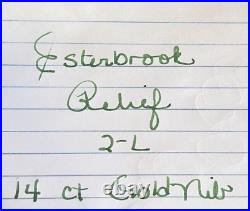 Esterbrook
Relief
2-L
14 ct Gold Nib